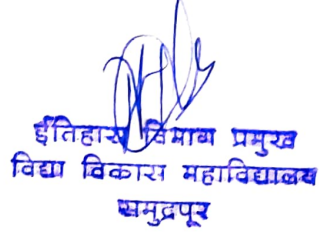 इतिहास विभाग प्रमुख
विद्या विकास महाविद्यालय
समुद्रपूर